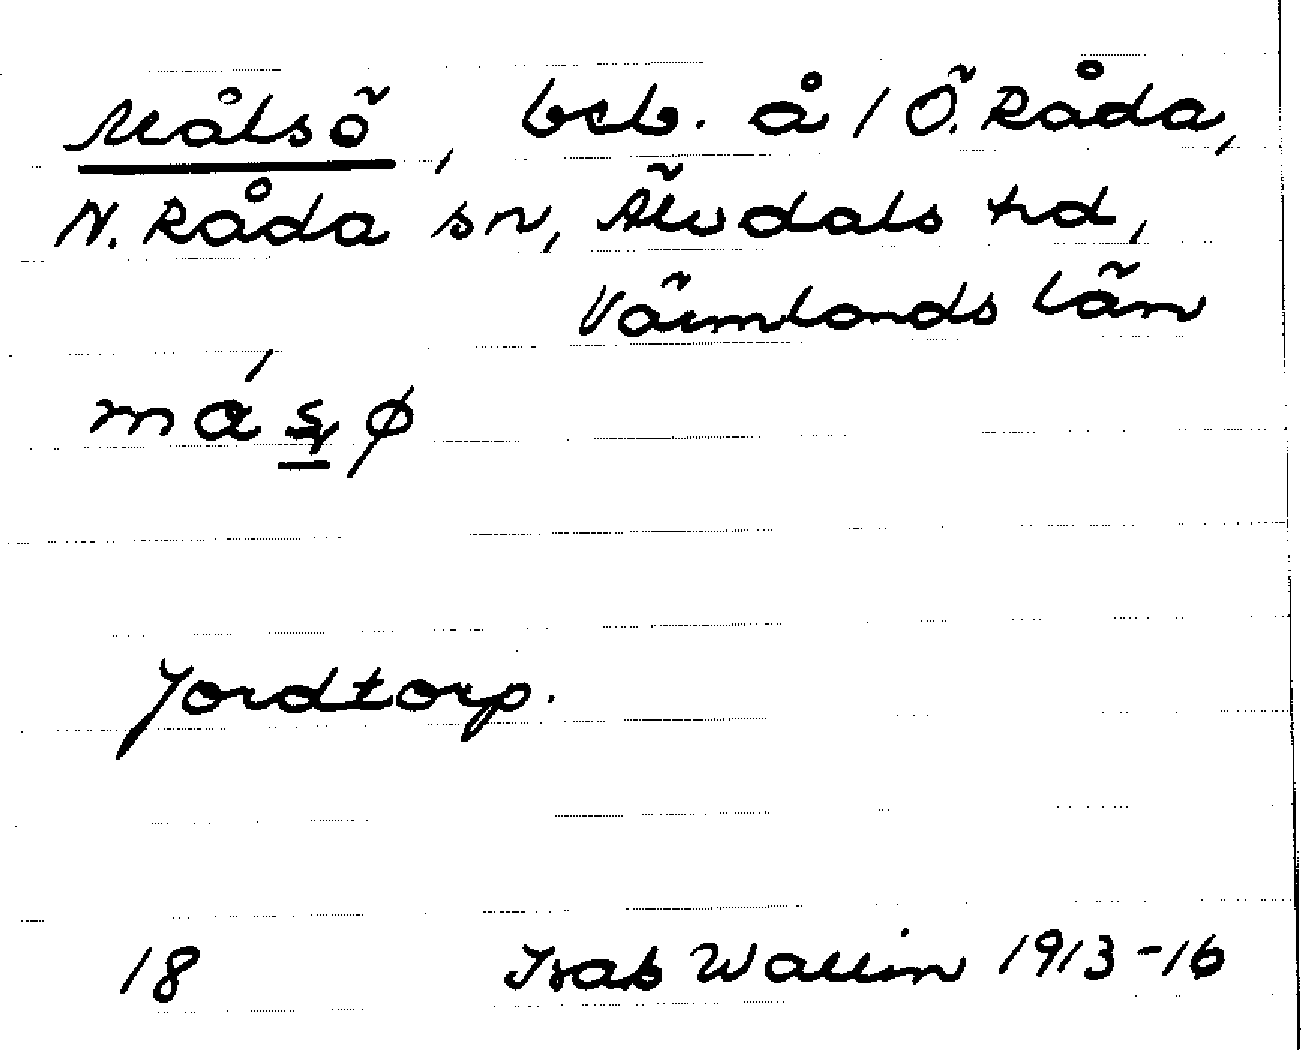 Målsö, beb. å 1 Ö. Råda,
N. Råda sn, Älvdals hd,
Värmlands län
Jordtorp.
18 Isak Wallin 1913-16